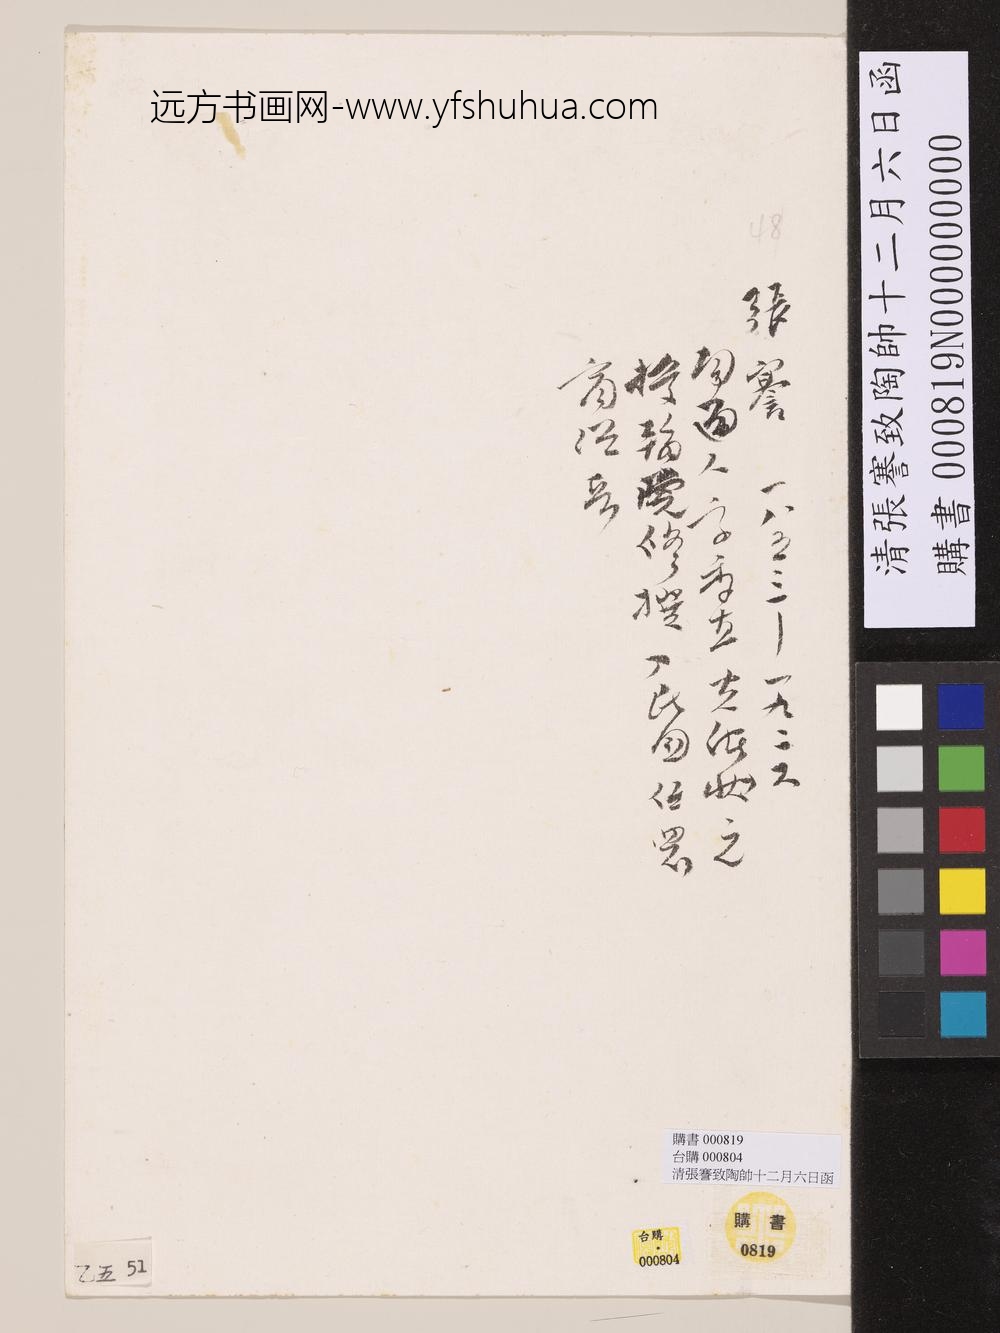 远方书画网-www.yfshuhua.com
清張謇致陶帥十二月六日函
購書 000819N000000000
48
張謇 一八五三—一九二六
南通人 字季直 光緒 之
授翰院修撰 民国任
商
購書 000819
台購 000804
清張謇致陶帥十二月六日函
購書
0819
台購
000804
乙五 51